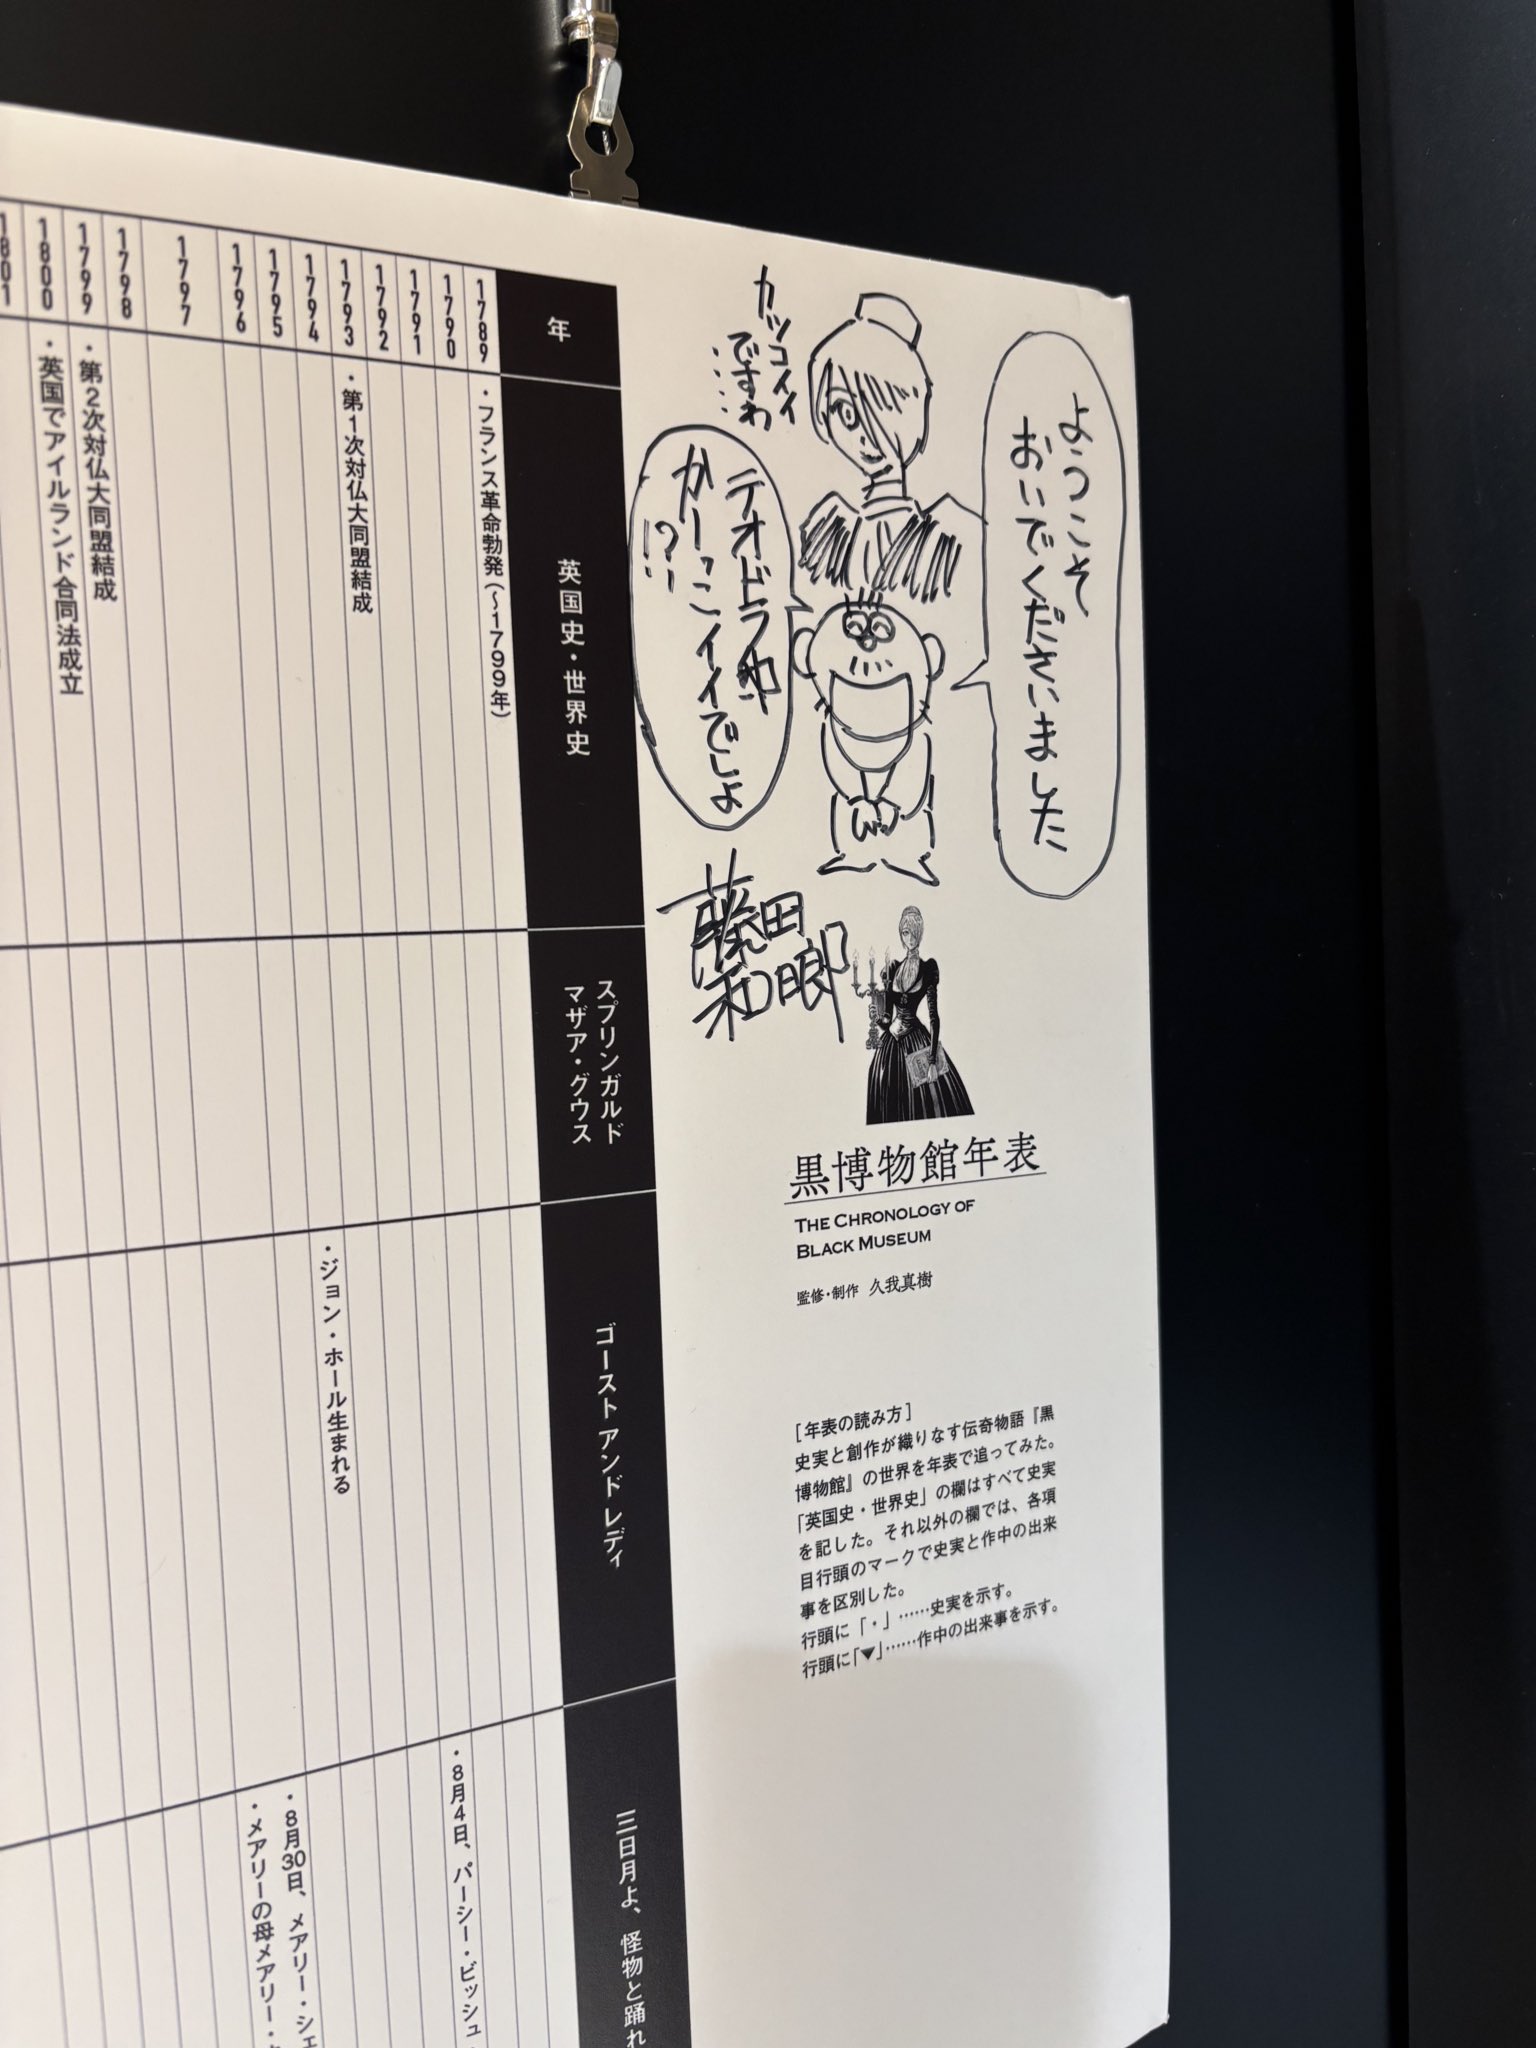 ようこそ
おいでくださいました
カッコイイ
ですわ
‥‥
テオドラ
かーっこイイでしょ
!?
藤田
和日郎
黒博物館年表
THE CHRONOLOGY OF
BLACK MUSEUM
監修・制作 久我真樹
[年表の読み方]
史実と創作が織りなす伝奇物語『黒
博物館』の世界を年表で追ってみた。
「英国史・世界史」の欄はすべて史実
を記した。それ以外の欄では、各項
目行頭のマークで史実と作中の出来
事を区別した。
行頭に「・」……史実を示す。
行頭に「▼」……作中の出来事を示す。
年
英国史・世界史
スプリンガルド
マザア・グウス
ゴースト アンド レディ
三日月よ、怪物と踊れ
1789
・フランス革命勃発(〜1799年)
1790
1791
1792
・8月4日、パーシー・ビッシュ
1793
・第1次対仏大同盟結成
1794
1795
・ジョン・ホール生まれる
1796
1797
・8月30日、メアリー・シェ
・メアリーの母メアリー・
1798
1799
・第2次対仏大同盟結成
1800
・英国でアイルランド合同法成立
1801